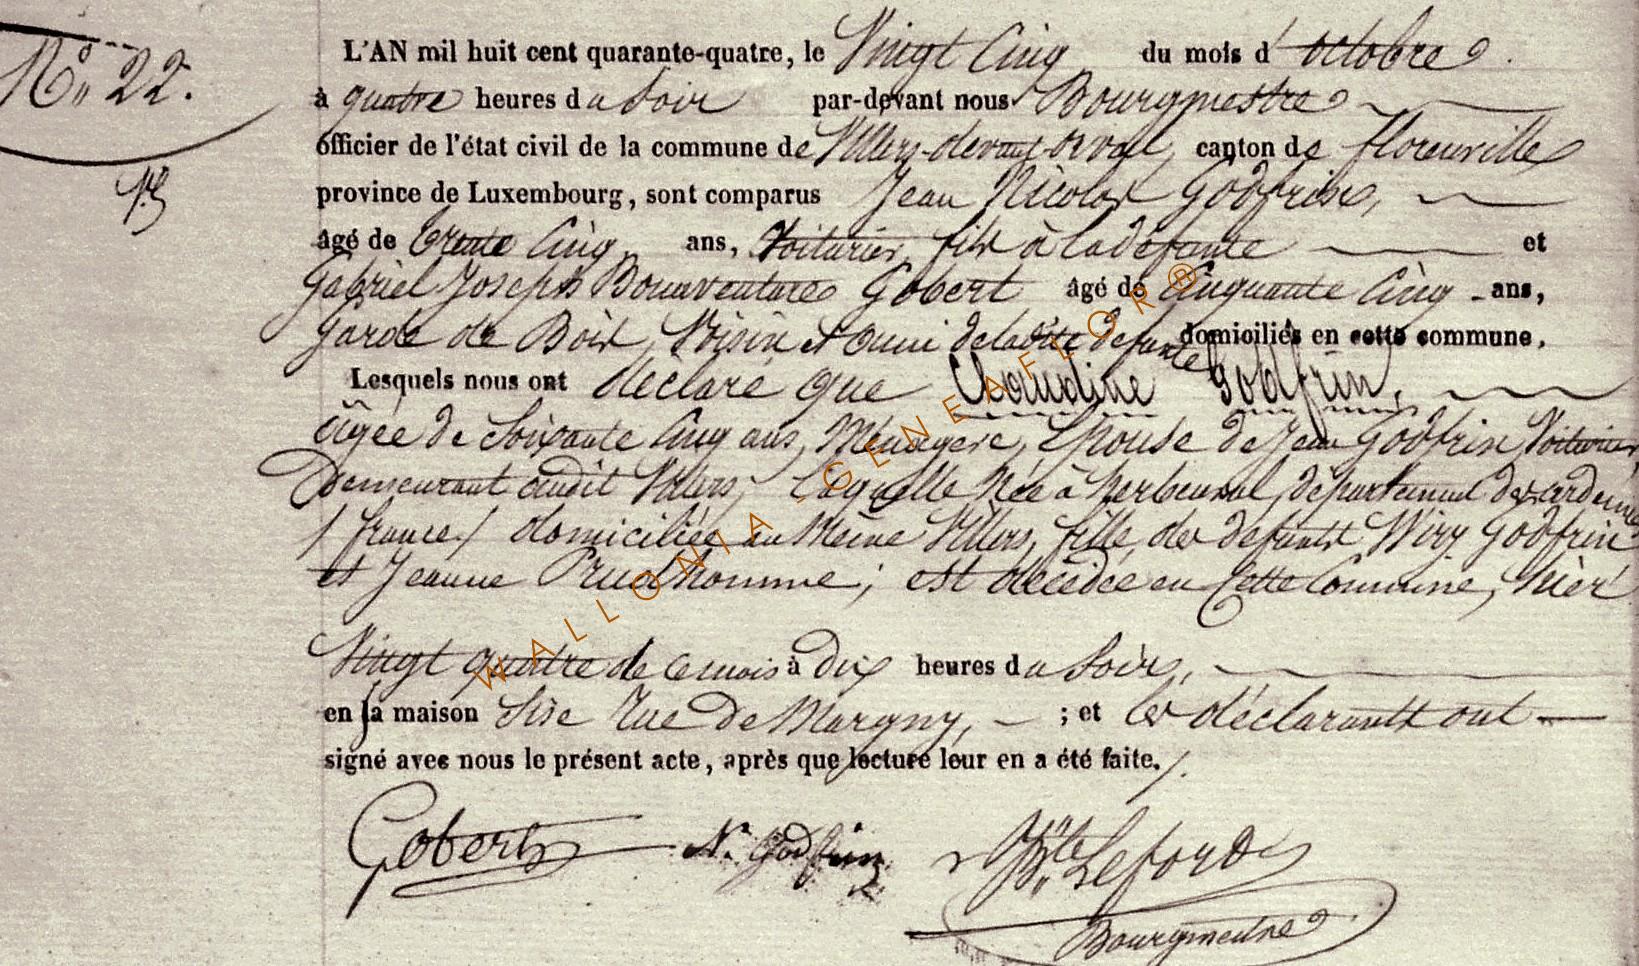 N° 22.
L'AN mil huit cent quarante-quatre, le Vingt Cinq du mois d'octobre.
à quatre heures du Soir par-devant nous Bourgmestre
officier de l'état civil de la commune de Villers-devant-orval, canton de florenville
province de Luxembourg, sont comparus Jean Nicolas Godfrin,
âgé de trente Cinq ans, Voiturier, fils à la défunte et
Gabriel Joseph Bonaventure Gobert âgé de Cinquante Cinq ans,
Garde de Bois, Voisin et ami de ladite défunte domiciliés en cette commune.
Lesquels nous ont déclaré que Claudine Godfrin,
âgée de Soixante Cinq ans, Ménagère, Epouse de Jean Godfrin Voiturier,
Demeurant audit Villers; laquelle Née à herbeuval, département des ardennes
/ france / domiciliée au Même Villers, fille des défunts Wiry Godfrin
et Jeanne Prud'homme; est décédée en Cette Commune, hier
Vingt quatre de ce mois à Dix heures du Soir,
en sa maison Sise Rue de Margny, ; et les déclarants ont
signé avec nous le présent acte, après que lecture leur en a été faite.
Gobert N. Godfrin Leford
Bourgmestre
WALLONIA - GENEAFLOR®